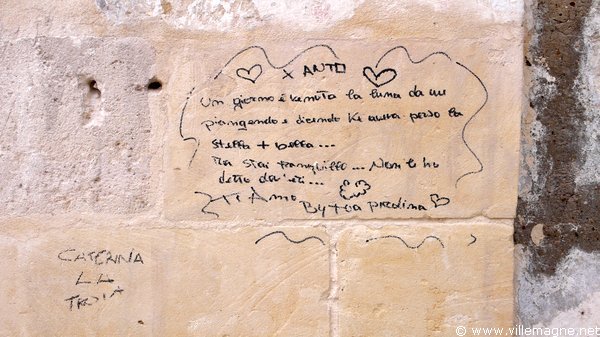 X ANTO
Un giorno è venuta la luna da me
piangendo e dicendo Ke aveva perso la
stella + bella...
Ma stai tranquillo... Non le ho
detto dov'eri...
Ti Amo
By tua piccolina
CATERINA
LA
TROIA
© www.villemagne.net